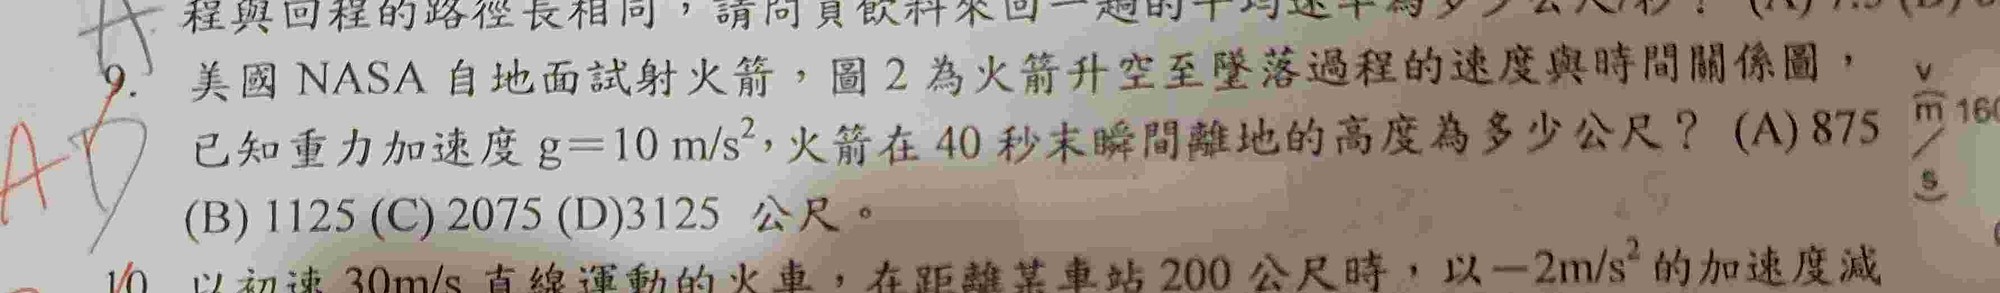 程與回程的路徑長相同，請問買飲料來回一趟的平均速率為多少公尺/秒？(A) 7.5 (B)
9. 美國 NASA 自地面試射火箭，圖 2 為火箭升空至墜落過程的速度與時間關係圖，
已知重力加速度 g=10 m/s²，火箭在 40 秒末瞬間離地的高度為多少公尺？ (A) 875
(B) 1125 (C) 2075 (D)3125 公尺。
10. 以初速 30m/s 直線運動的火車，在距離某車站 200 公尺時，以－2m/s² 的加速度減
v
(m/s)
160
A
D
A